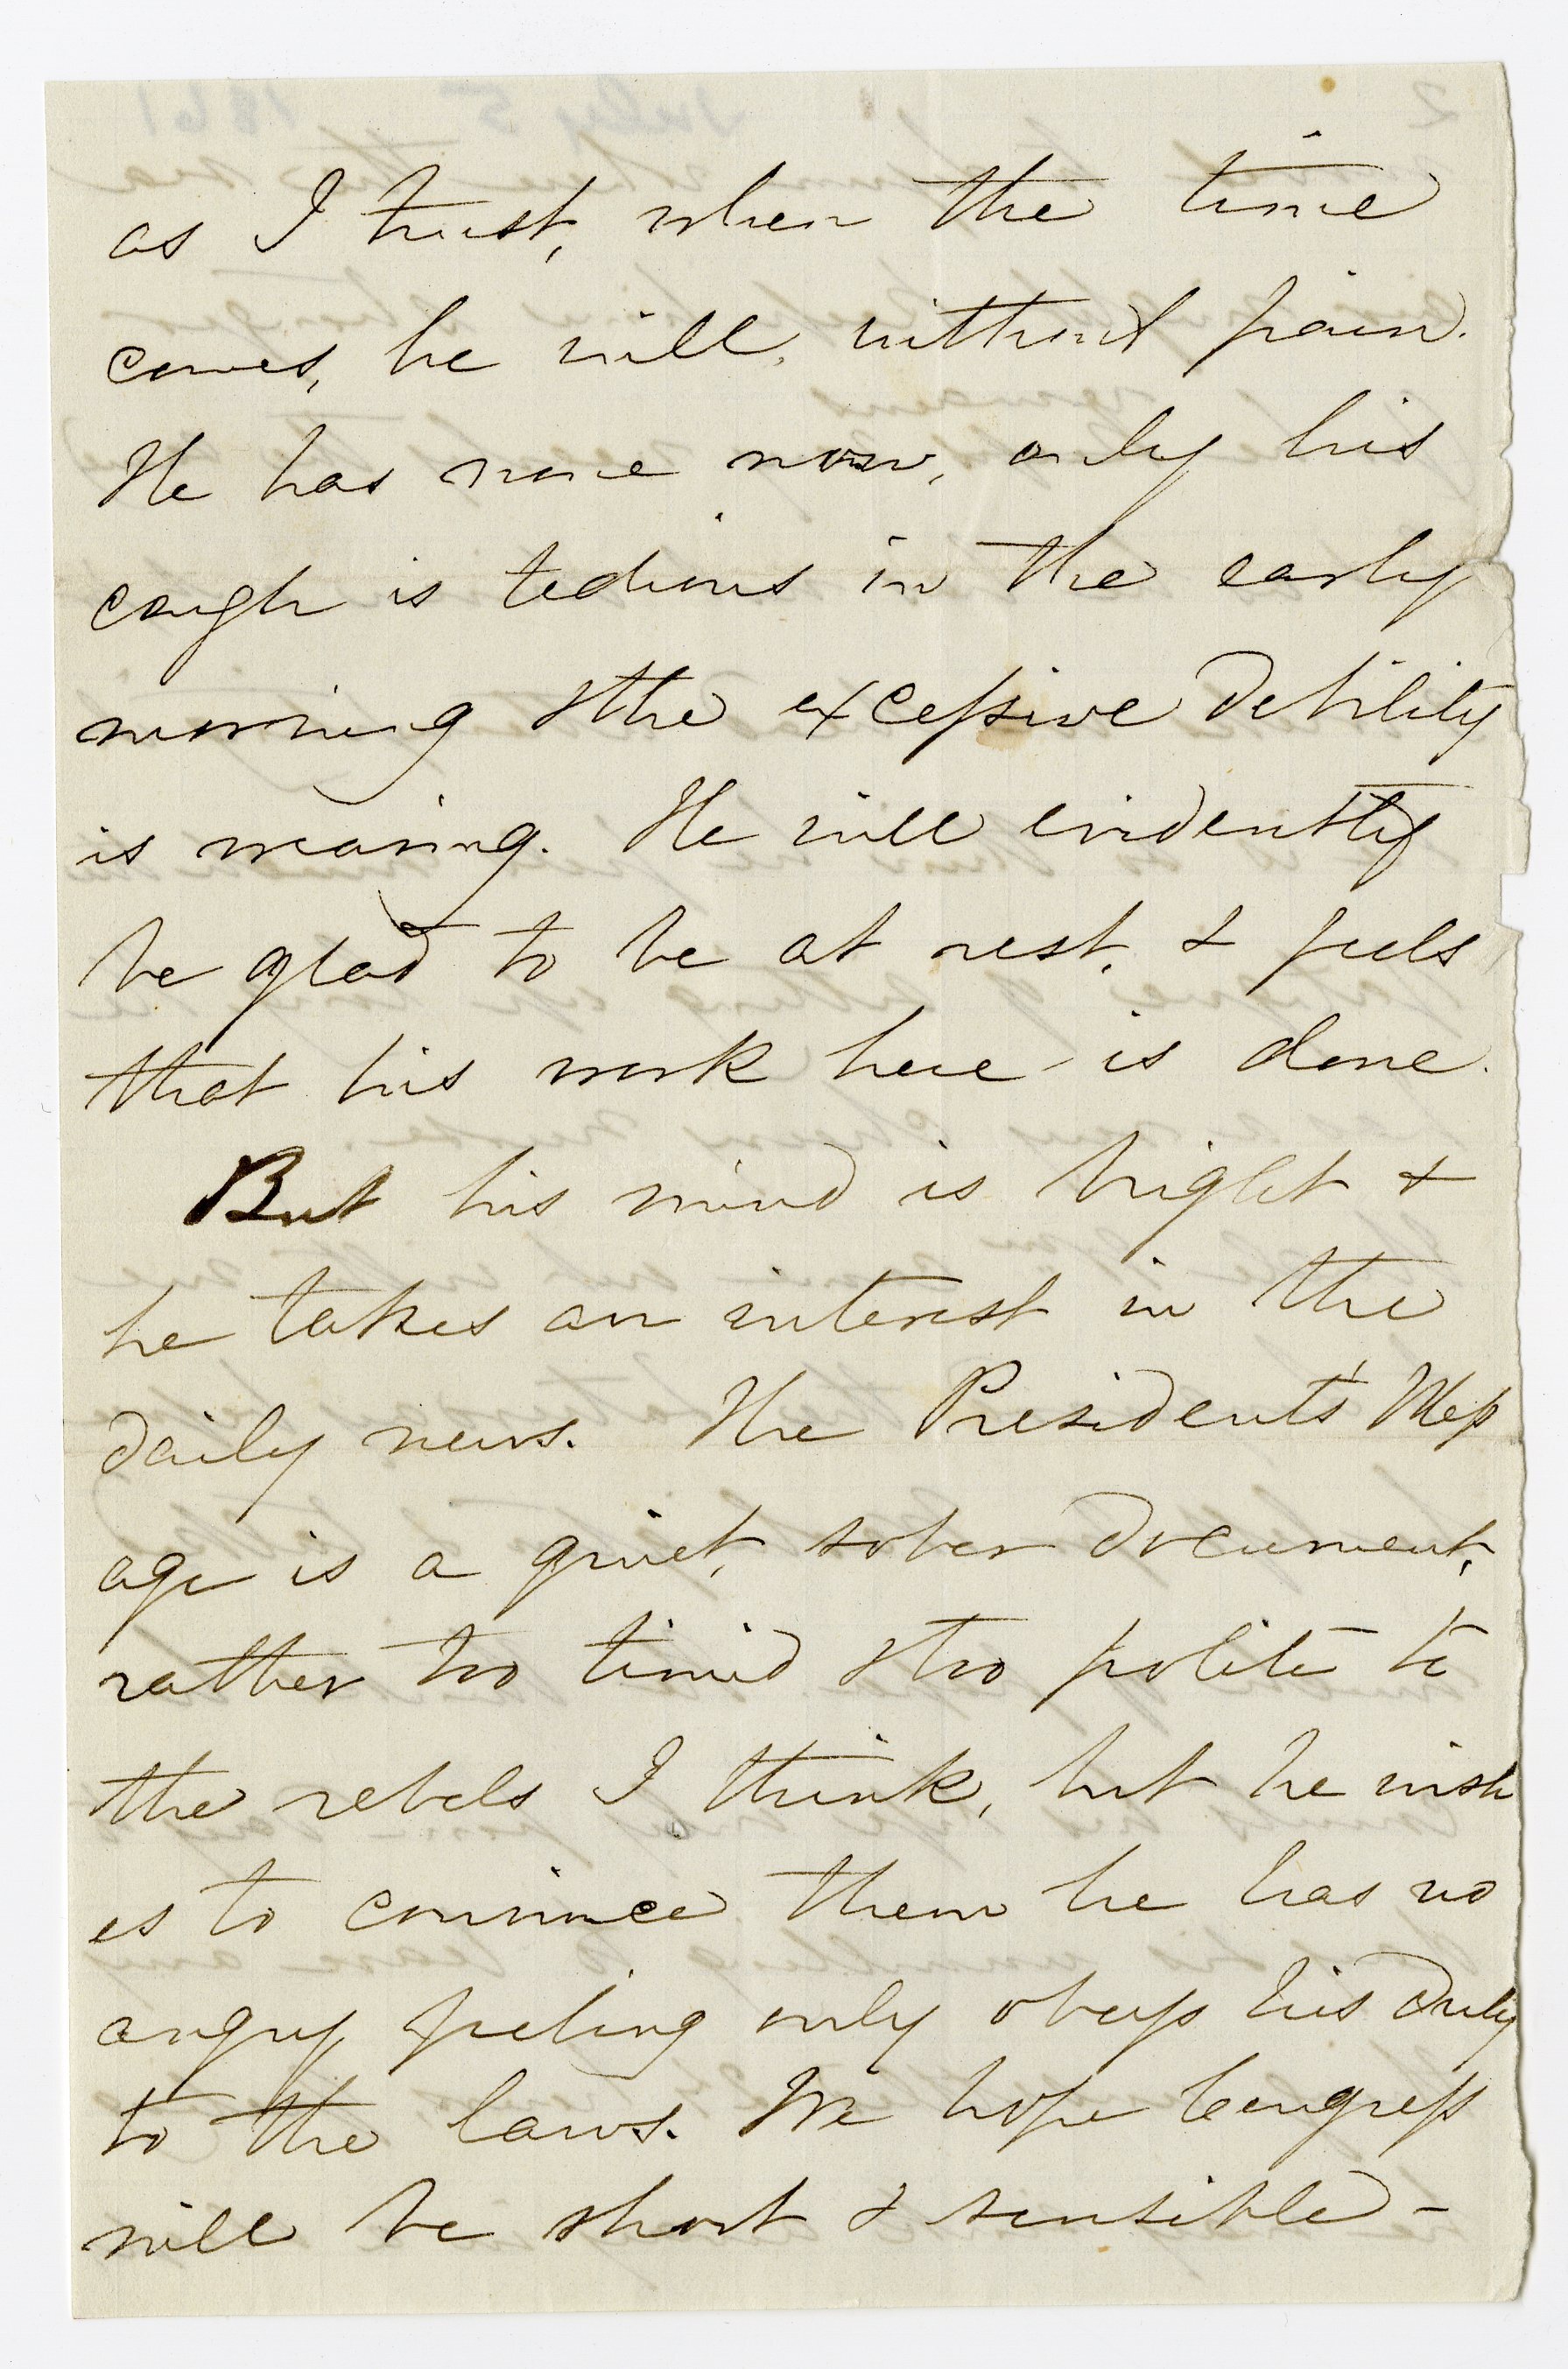 as I trust, when the time
comes, he will, without pain.
He has none now, only his
cough is tedious in the early
morning & the excessive debility
is wearing. He will evidently
be glad to be at rest, & feels
that his work here is done.
But his mind is bright &
he takes an interest in the
daily news. The President's Mess
age is a quiet, sober document,
rather too timid & too polite to
the rebels I think, but he wish
es to convince them he has no
angry feeling only obeys his duty
to the laws. We hope Congress
will be short & sensible -